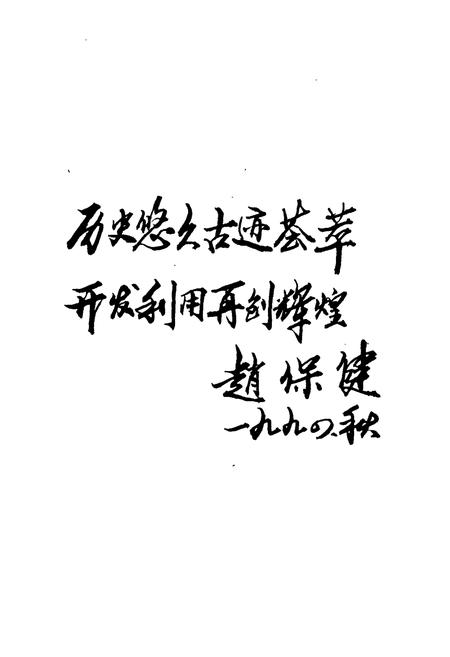 历史悠久古迹荟萃
开发利用再创辉煌
趙保健
一九九四.秋